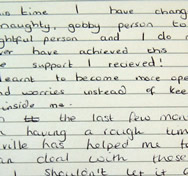 time I have chang
naughty, gobby person to
ghtful person and I do
ver have achieved this
e support I recieved!
learnt to become more ope
nd worries instead of kee
inside me.
the last few mon
having a rough tim
ville has helped me to
an deal with those
I shouldn't let it